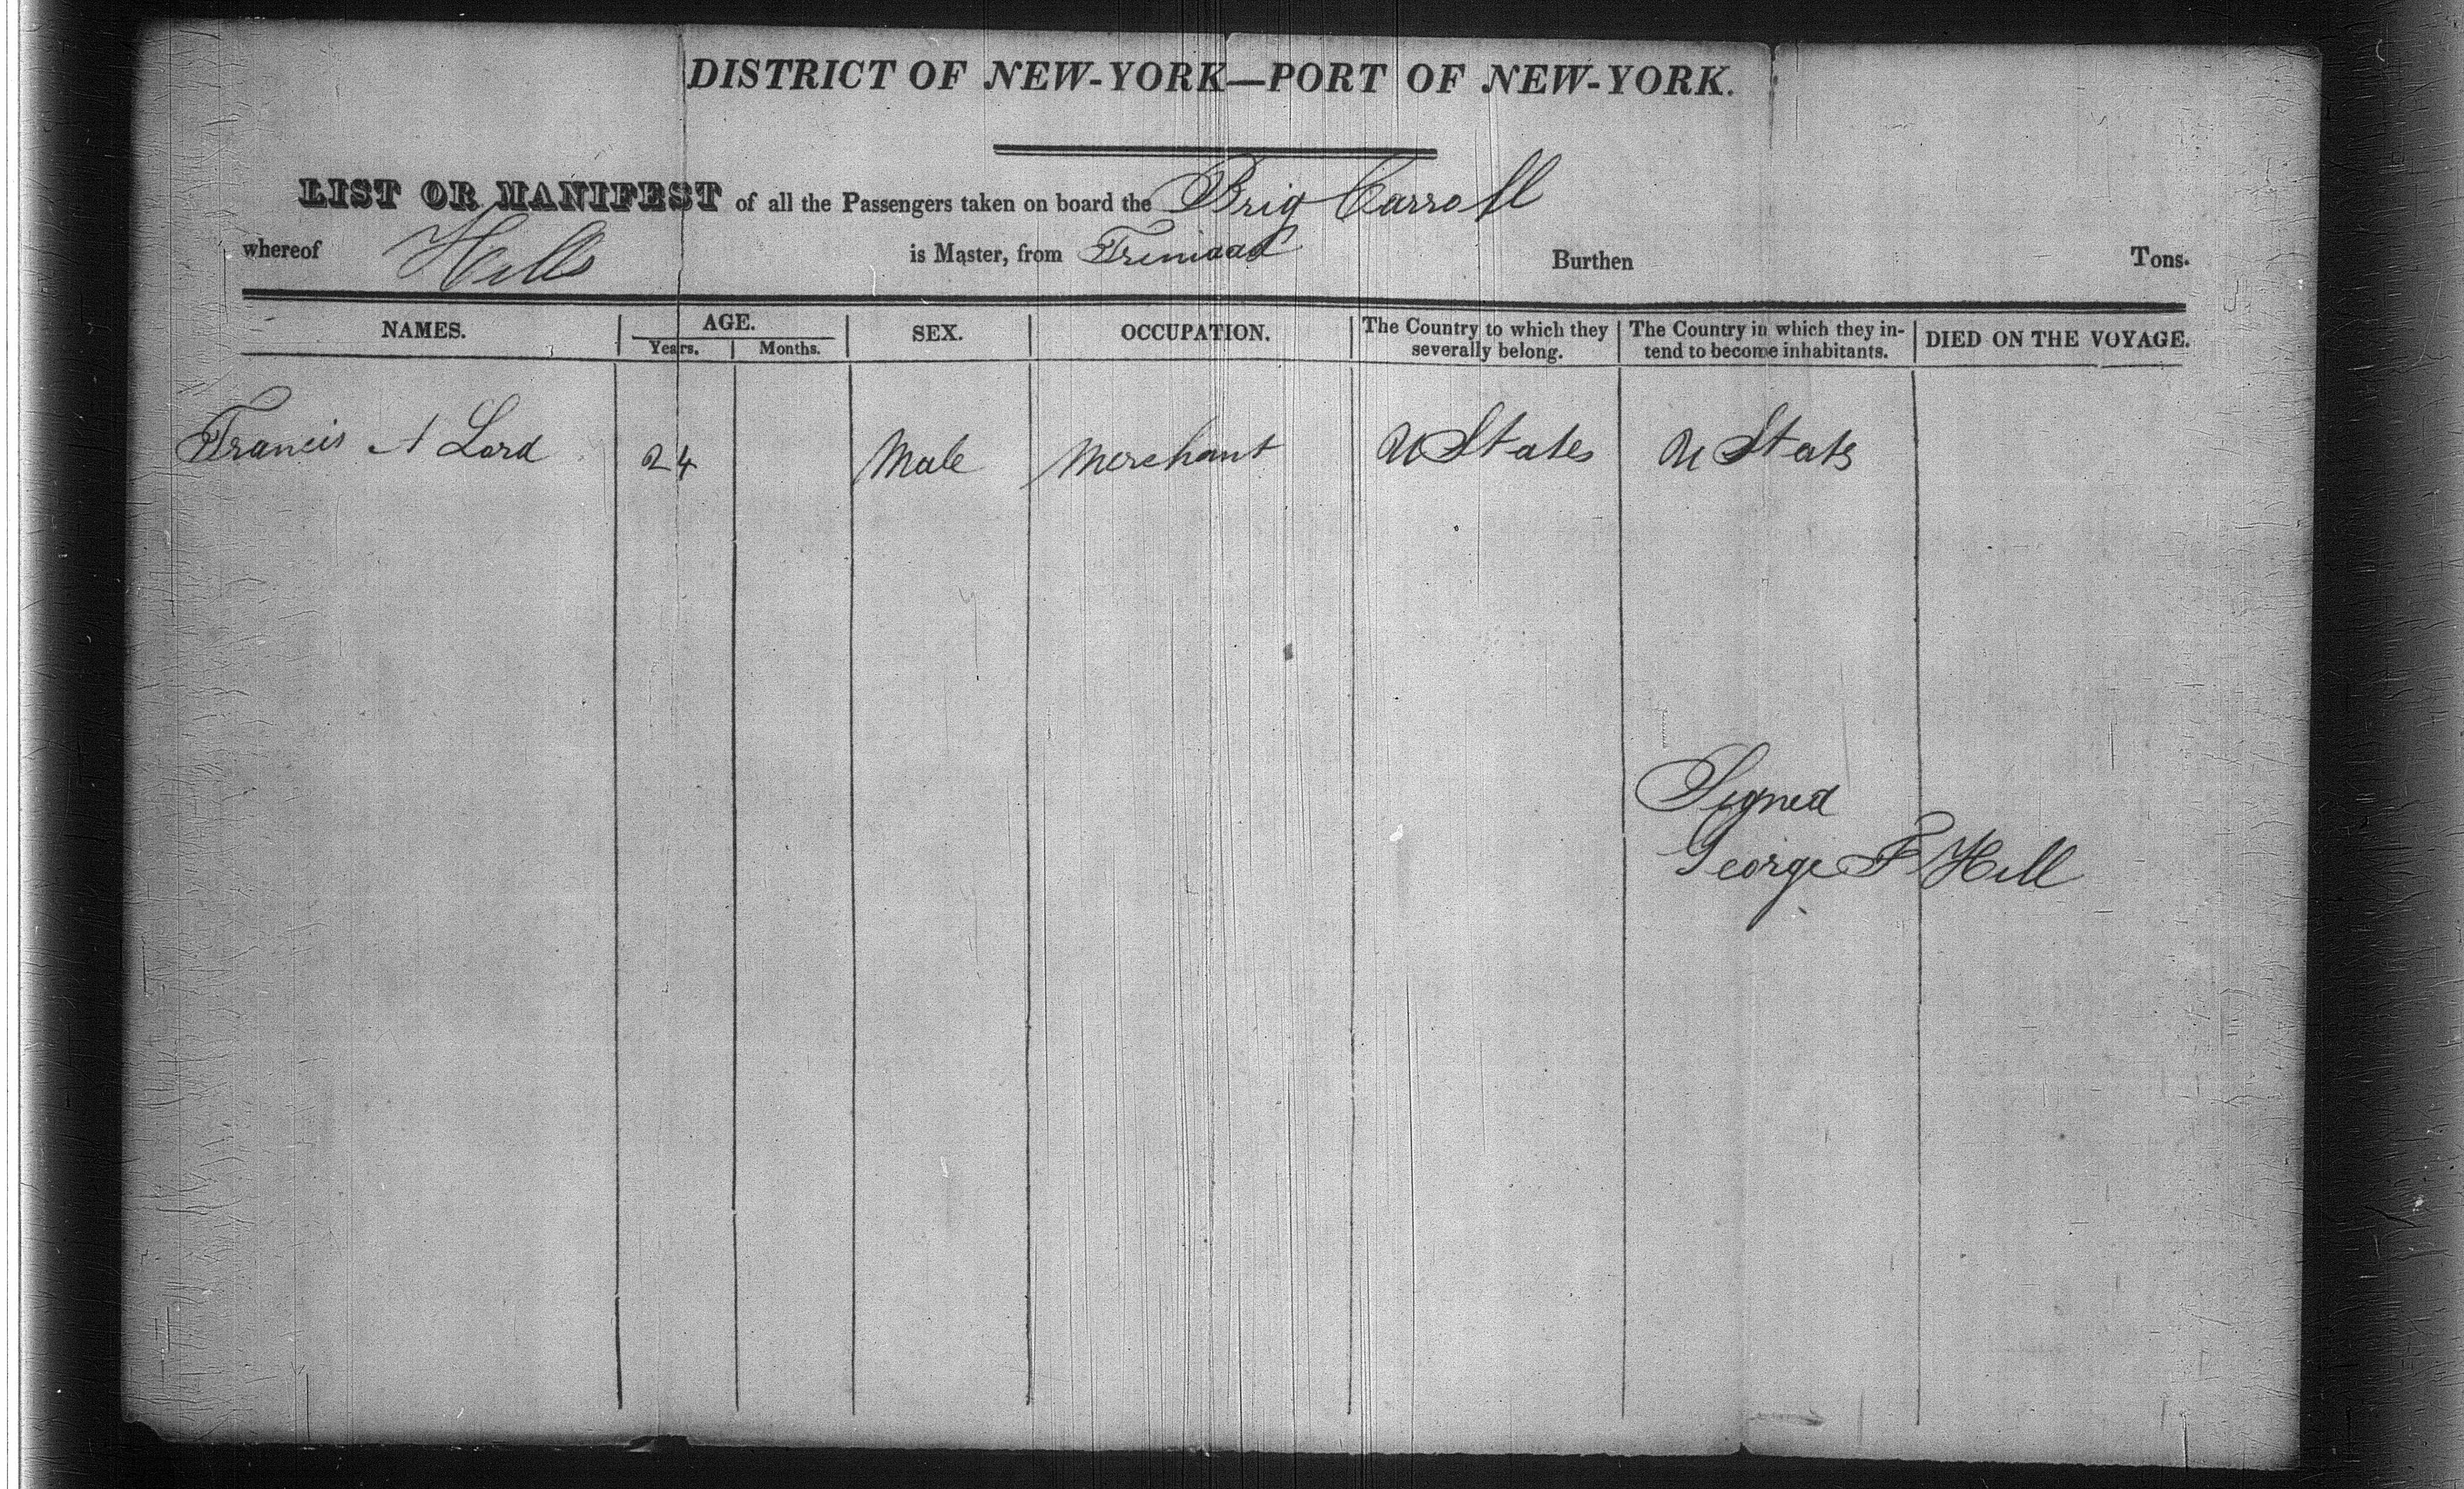 DISTRICT OF NEW-YORK—PORT OF NEW-YORK.
LIST OR MANIFEST of all the Passengers taken on board the Brig Carroll
whereof Hills is Master, from Trinidad Burthen Tons.
NAMES. AGE. SEX. OCCUPATION. The Country to which they severally belong. The Country in which they intend to become inhabitants. DIED ON THE VOYAGE.
Years. Months.
Francis A Lord 24 Male Merchant U States U Stats
Signed
George F Hill